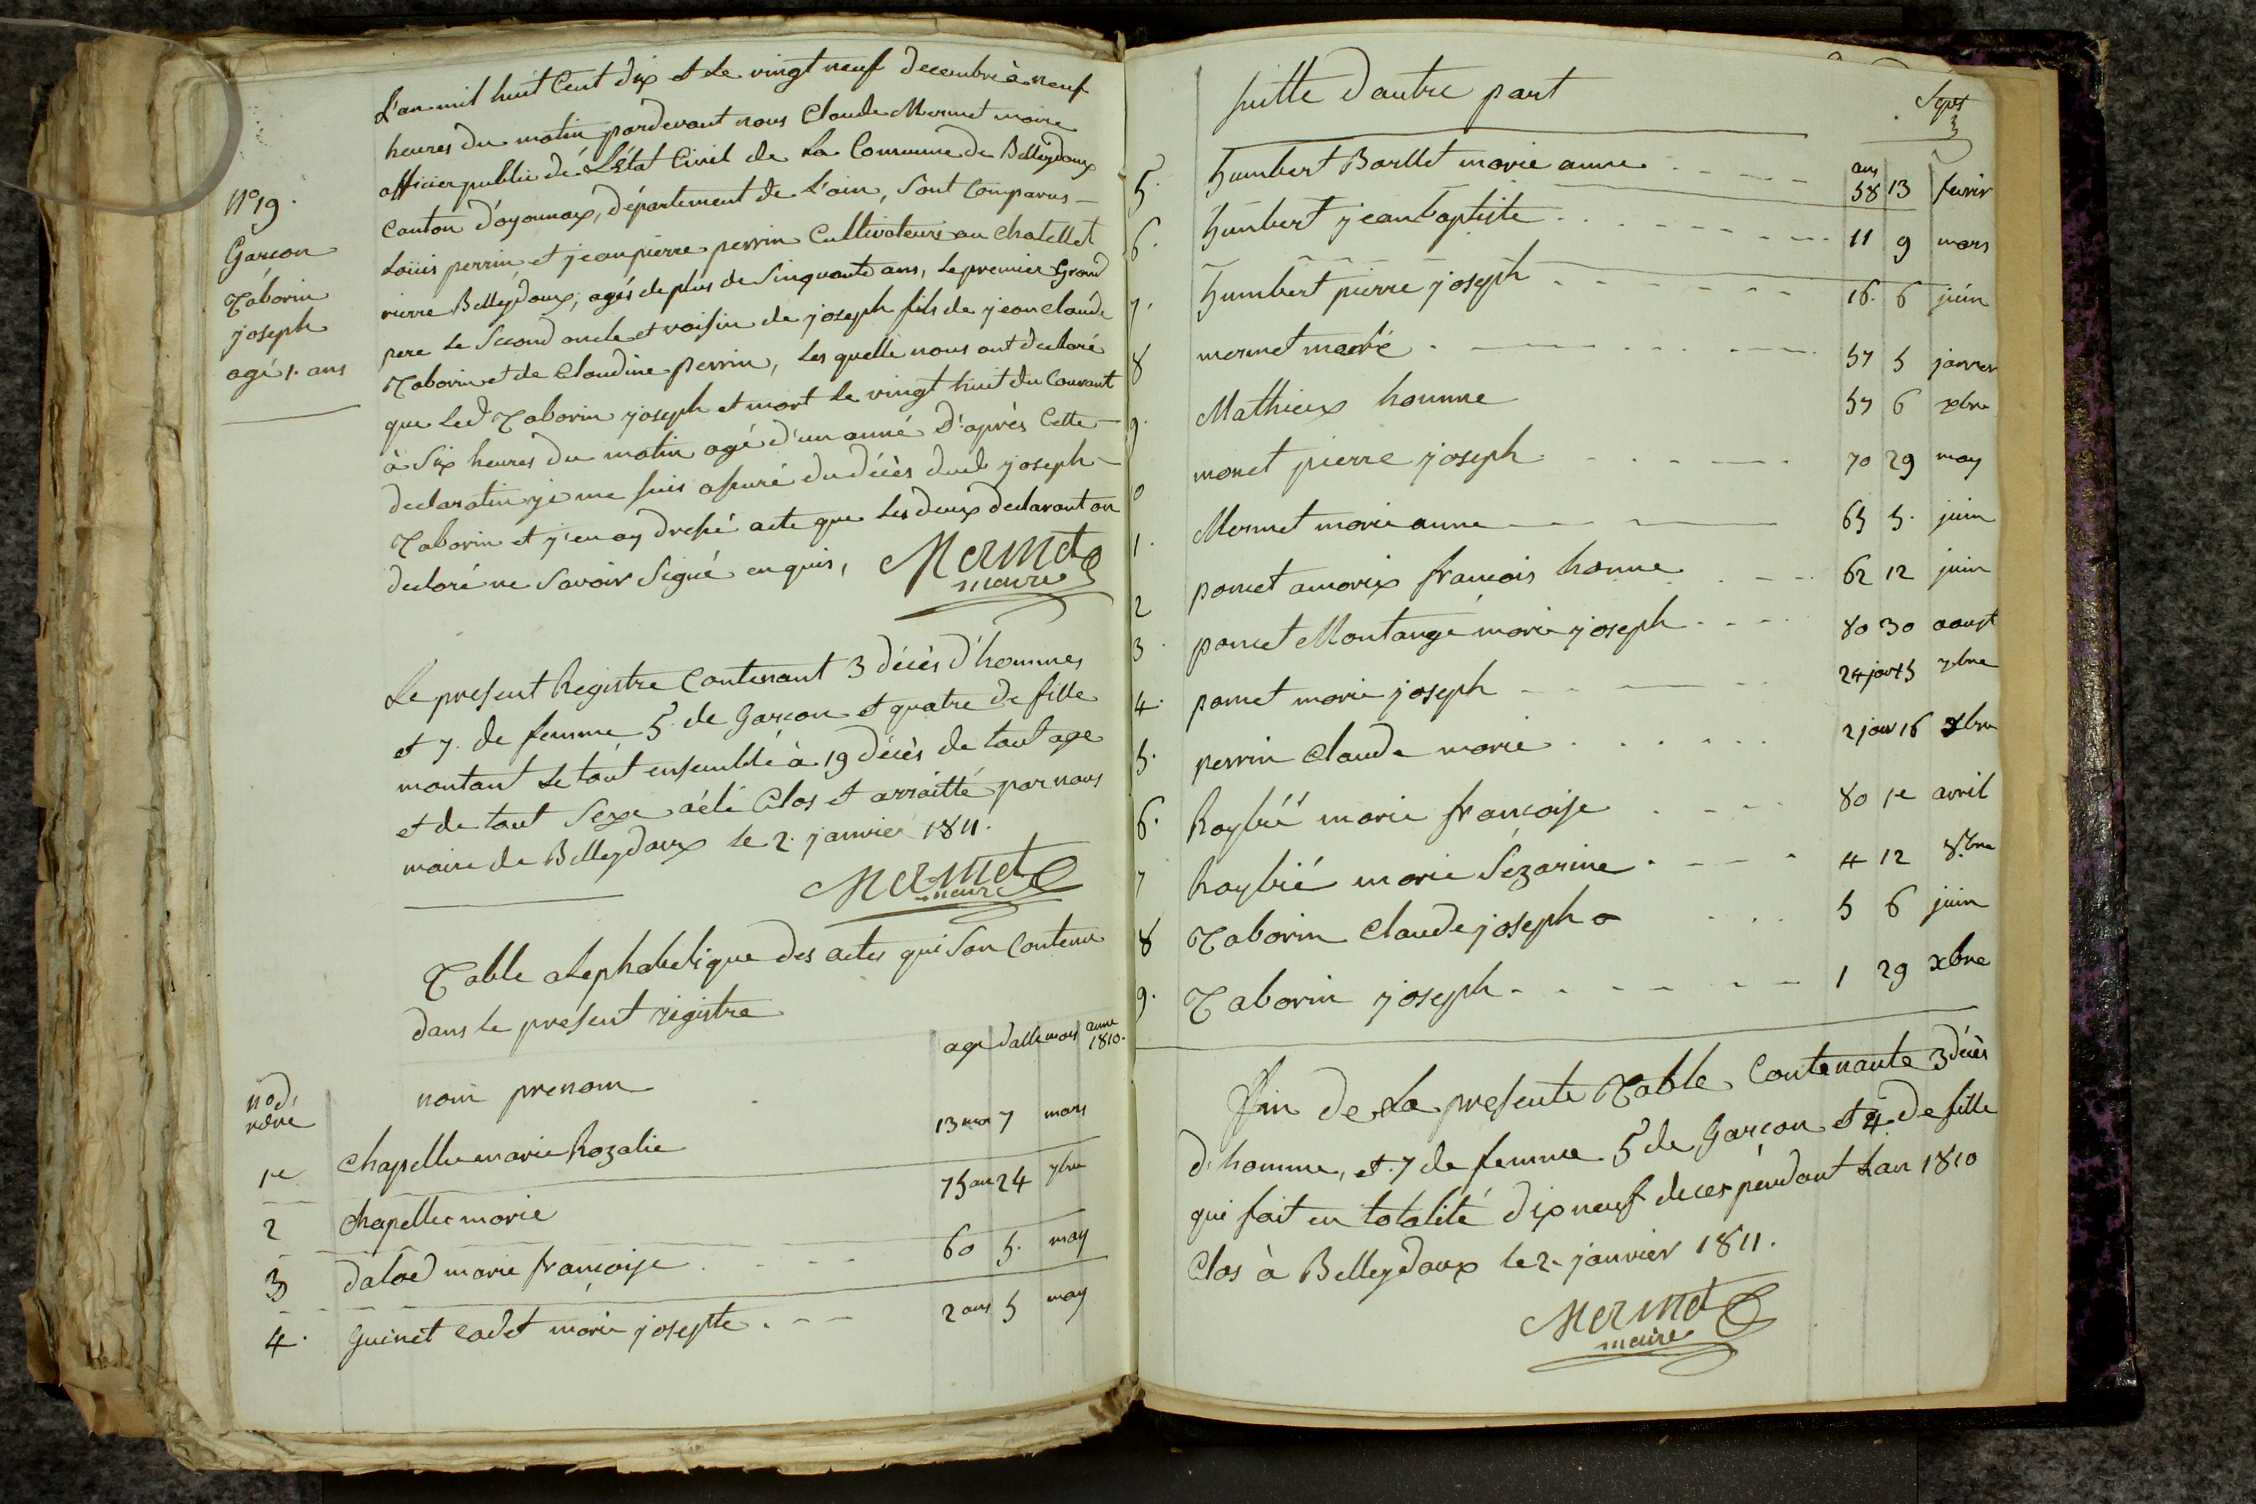 N° 19.
Garcon
Taborin
joseph
agé 1. ans
L'an mil huit Cent dix et le vingt neuf decembre à neuf
heures du matin pardevant nous Claude Mermet maire
officier public dé L'état Civil de La Commune de Belleydoux
Canton d'oyonnax, département de L'ain, sont Comparus -
Loüis perrin et jean pierre perrin Cultivateurs au Chatellet
rierre Belleydoux, agés de plus de Sinquante ans, Le premier Grand
pere Le Second oncle et voisin de joseph fils de jean claude
Taborin et de Claudine perrin, Les quelle nous ont declaré
que Led Taborin joseph et mort Le vingt huit du Courant
à Six heures du matin agé d'un anné D'après Cette -
declaration je me suis assuré du décès dud joseph -
Taborin et j'en ay dressé acte que Les deux declarant on
declaré ne Savoir Signé enquis, Mermet
maire
Le present Registre Contenant 3 décès d'hommes
et 7. de femme 5. de Garcon et quatre de fille
montant Le tout ensemble à 19 décès de tout age
et de tout Sexe aété Clos et arraitté par nous
maire de Belleydoux le 2. janvier 1811.
Mermet
maire
Table alephabetique des actes qui Son Contenu
dans Le present registre
no d,
rdre nom prenom age datte mois anne
1810.
1e Chapellu marie Rozalie 13 moi 7 mars
2 Chapellu marie 75 ans 24 7bre
3 dalod marie francoise 60 5. may
4. Guinet Cadet marie josephte 2 ans 5 may
suitte d'autre part
Sept
3
5. humbert Barllet marie anne ans 58 13 fevrir
6. humbert jean baptiste 11 9 mars
7. humbert pierre joseph 16. 6 juin
8 mermet marie 57 5 janvier
9. Mathieux homme 57 6 xbre
0 monet pierre joseph 70 29 may
1. Mermet marie anne 65 5. juin
2 poncet amorix francois homme 62 12 juin
3. poncet Montange marie joseph 80 30 aoust
4. poncet marie joseph 24 jor 5 7bre
5. perrin Claude marie 2 jour 16 xbre
6. Raybié marie francoise 80 1e avril
7 Raybié marie Sézarine 4 12 8.bre
8 Taborin Claude joseph 5 6 juin
9. Taborin joseph 1 29 xbre
Fin de La presente Table Contenante 3 décès
d'homme, et 7 de femme 5 de Garcon et 4 de fille
qui fait en totalité dix neuf deces pendant Lan 1810
Clos à Belleydoux le 2. janvier 1811.
Mermet
maire